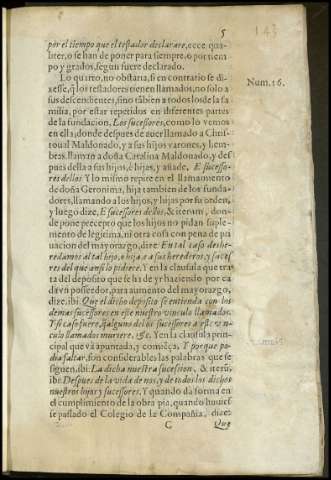 5
143
por el tiempo que el testador declarare, ecce qua-
liter, o se han de poner para siempre, o por tiem-
po y grados, segun fuere declarado.
Lo quarto, no obstara, si en contrario se di-
xesse, q̃ los testadores tienen llamados, no solo a
sus descendientes, sino tãbien a todos los de la fa
milia, por estar repetidos en diferentes partes
de la fundacion, Los sucessores, como lo vemos
en ella; donde despues de auer llamado a Chris-
toual Maldonado, y a sus hijos varones, y hem-
bras llaman a doña Catalina Maldonado, y des
pues della a sus hijos, è hijas, y añade, E sucesso-
res dellos Y lo mismo repite en el llamamiento
de doña Geronima, hija tambien de los funda-
dores, llamando a los hijos, y hijas por su orden,
y luego dize, E sucessores dellos, & iterum, don-
de pone precepto que los hijos no pidan suple-
mento de legitima, ni otra cosa con pena de pri
uacion del mayorazgo, dize: En tal caso deshe-
redamos al tal hijo, o hija, e a sus herederos, y suces
res del que ansi lo pidiere. Y en la clausula que tra
ta del deposito que se ha de yr haziendo por ca
da vn posseedor, para aumento del mayorazgo,
dize, ibi. Que el dicho deposito se entienda con los
demas sucessores en este nuestro vinculo llamados.
Y si caso fuere, q̃ alguno de los sucessores a este vin-
culo llamados muriere, &c. Y en la clausula prin
cipal que va apuntada, y comiẽça, Y porque po
dia faltar, son considerables las palabras que se
siguen, ibi: La dicha nuestra sucesion, & iterũ,
ibi: Despues de la vida de nos, y de todos los dichos
nuestros hijos y sucessores. Y quando da forma en
el cumplimiento de la obra pia, quando huuies
se passado el Colegio de la Compañia, dize:
C
Que
Num. 16.